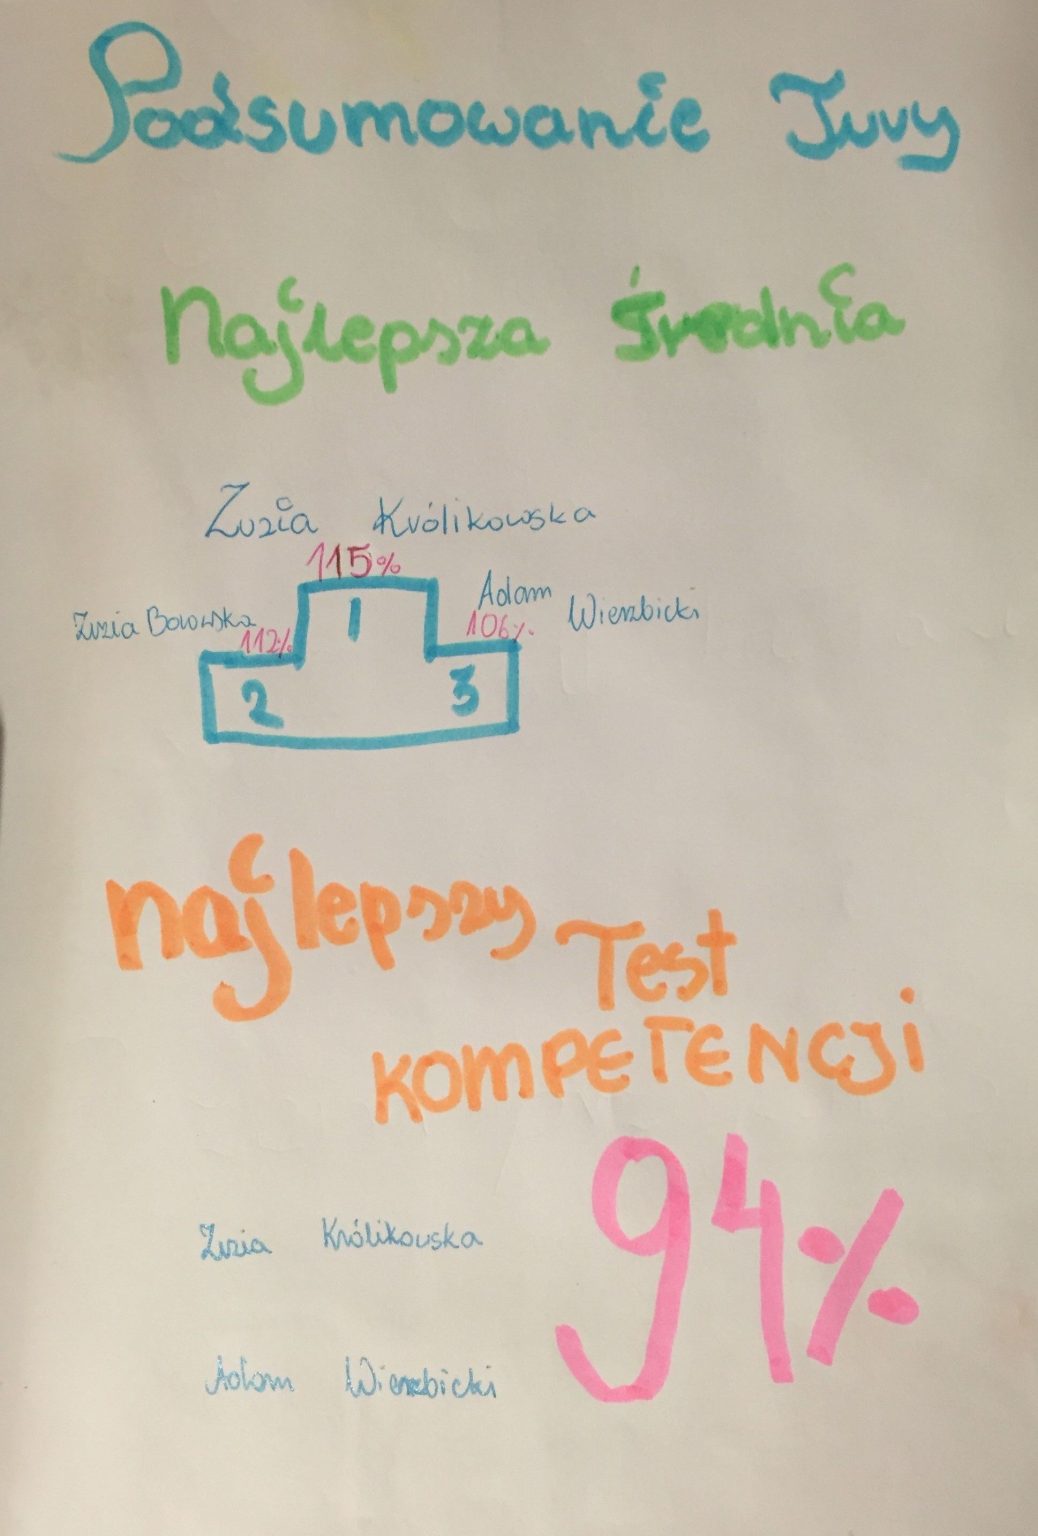 Podsumowanie Juvy
Najlepsza średnia
Zuzia Królikowska
115%
Zuzia Borowska
112%
Adam Wierzbicki
106%
1
2 3
najlepszy Test
KOMPETENCJI
94%
Zuzia Królikowska
Adam Wierzbicki